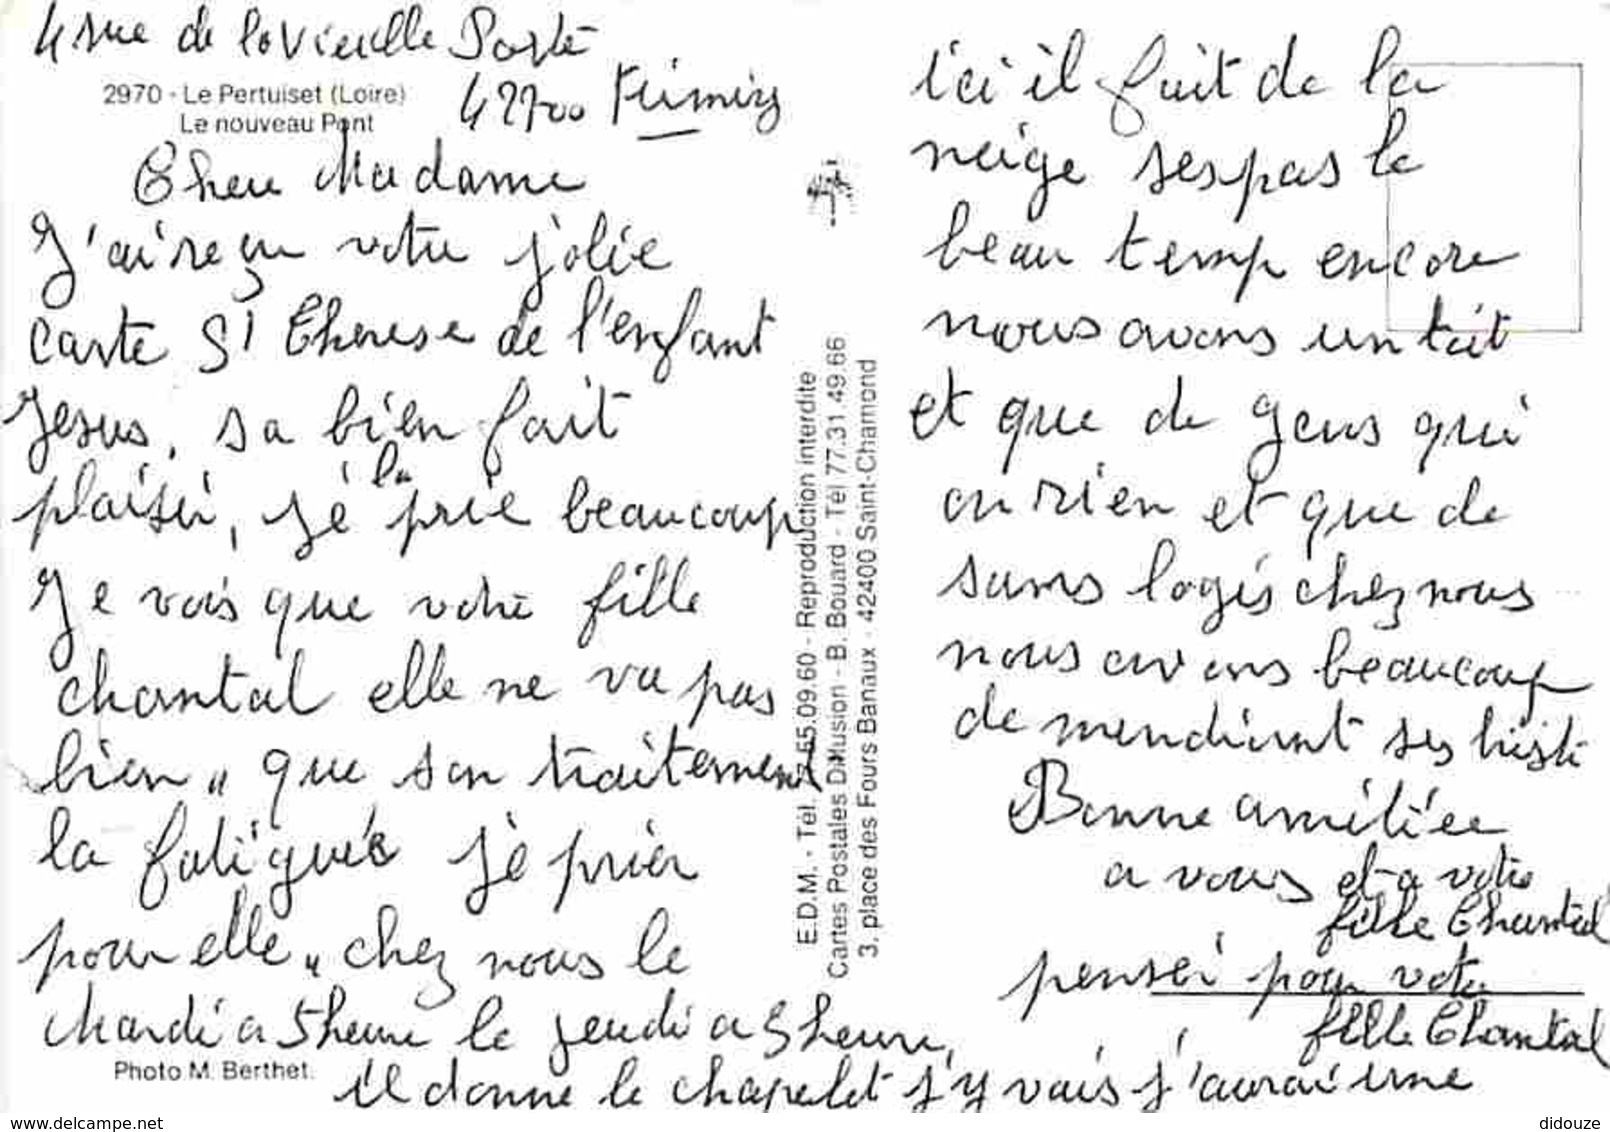 4 rue de la Vieille Poste
2970 - Le Pertuiset (Loire)
Le nouveau Pont
42700 Firminy
Cher Madame
J'ai reçu votre jolie
carte St Therese de l'enfant
Jesus, sa bien fait
plaisir, je la prie beaucoup
Je vois que votre fille
chantal elle ne va pas
bien " que son traitement
la fatiguée je prier
pour elle " chez nous le
Mardi a 5 heure le jeudi a 5 heure,
il donne le chapelet j'y vais j'aurai une
Photo M. Berthet.
E.D.M. - Tél. 65.09.60 - Reproduction interdite
Cartes Postales Diffusion - B. Bouard - Tél 77.31.49.66
3, place des Fours Banaux - 42400 Saint-Chamond
ici il fait de la
neige ses pas le
beau temp encore
nous avons un toit
et que de gens qui
on rien et que de
sans logis chez nous
nous avons beaucoup
de mendiant ses triste
Bonne amitiée
a vous et a votre
fille Chantal
penser pour votre
fille Chantal
www.delcampe.net
didouze